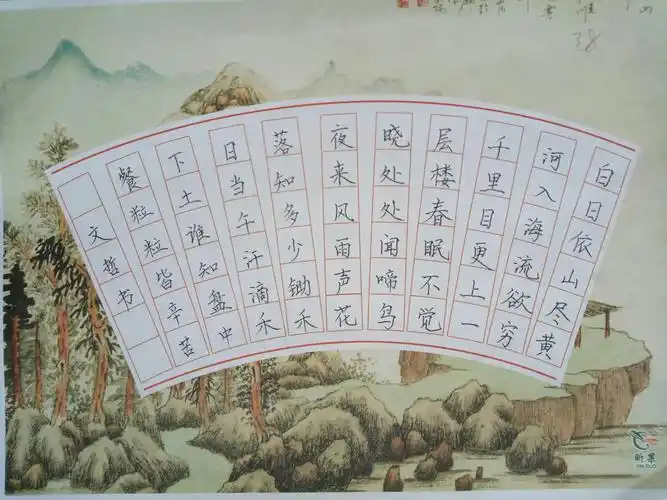 白日依山尽黄
河入海流欲穷
千里目更上一
层楼春眠不觉
晓处处闻啼鸟
夜来风雨声花
落知多少锄禾
日当午汗滴禾
下土谁知盘中
餐粒粒皆辛苦
文哲书
昕果
XIN GUO